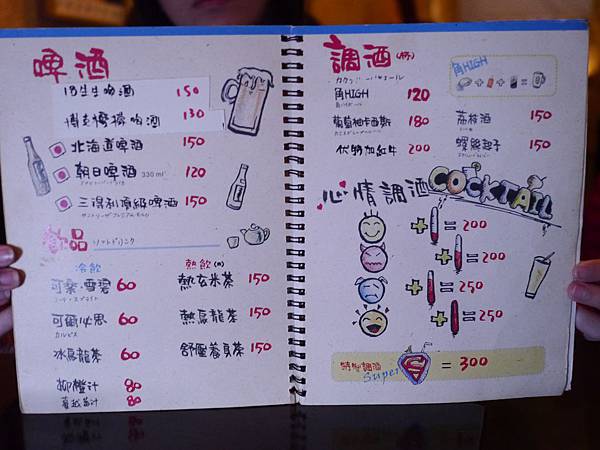 啤酒
18生生啤酒 150
博克檸檬啤酒 130
北海道啤酒 150
朝日啤酒 330ml 120
三得利頂級啤酒 150
サントリーザプレミアムモルツ
飲品 ソフトドリンク
冷飲
可樂·雪碧 60
コーラ·スプライト
可爾必思 60
カルピス
冰烏龍茶 60
柳橙汁 80
蔓越莓汁 80
熱飲
熱玄米茶 150
熱烏龍茶 150
舒壓養身茶 150
調酒(杯)
角HIGH 120
葡萄柚卡西斯 180
伏特加紅牛 200
角HIGH
荔枝酒 150
螺絲起子 150
心情調酒 COCKTAIL
+ = 200
+ = 200
+ = 250
+ = 250
特製調酒 Super S = 300